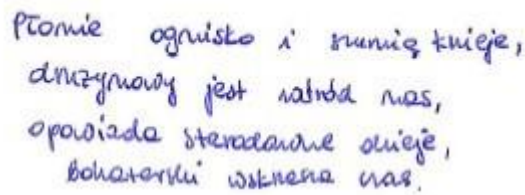 Płonie ognisko i szumią knieje,
drużynowy jest wśród nas,
opowiada starodawne dzieje,
bohaterski wskrzesza czas.